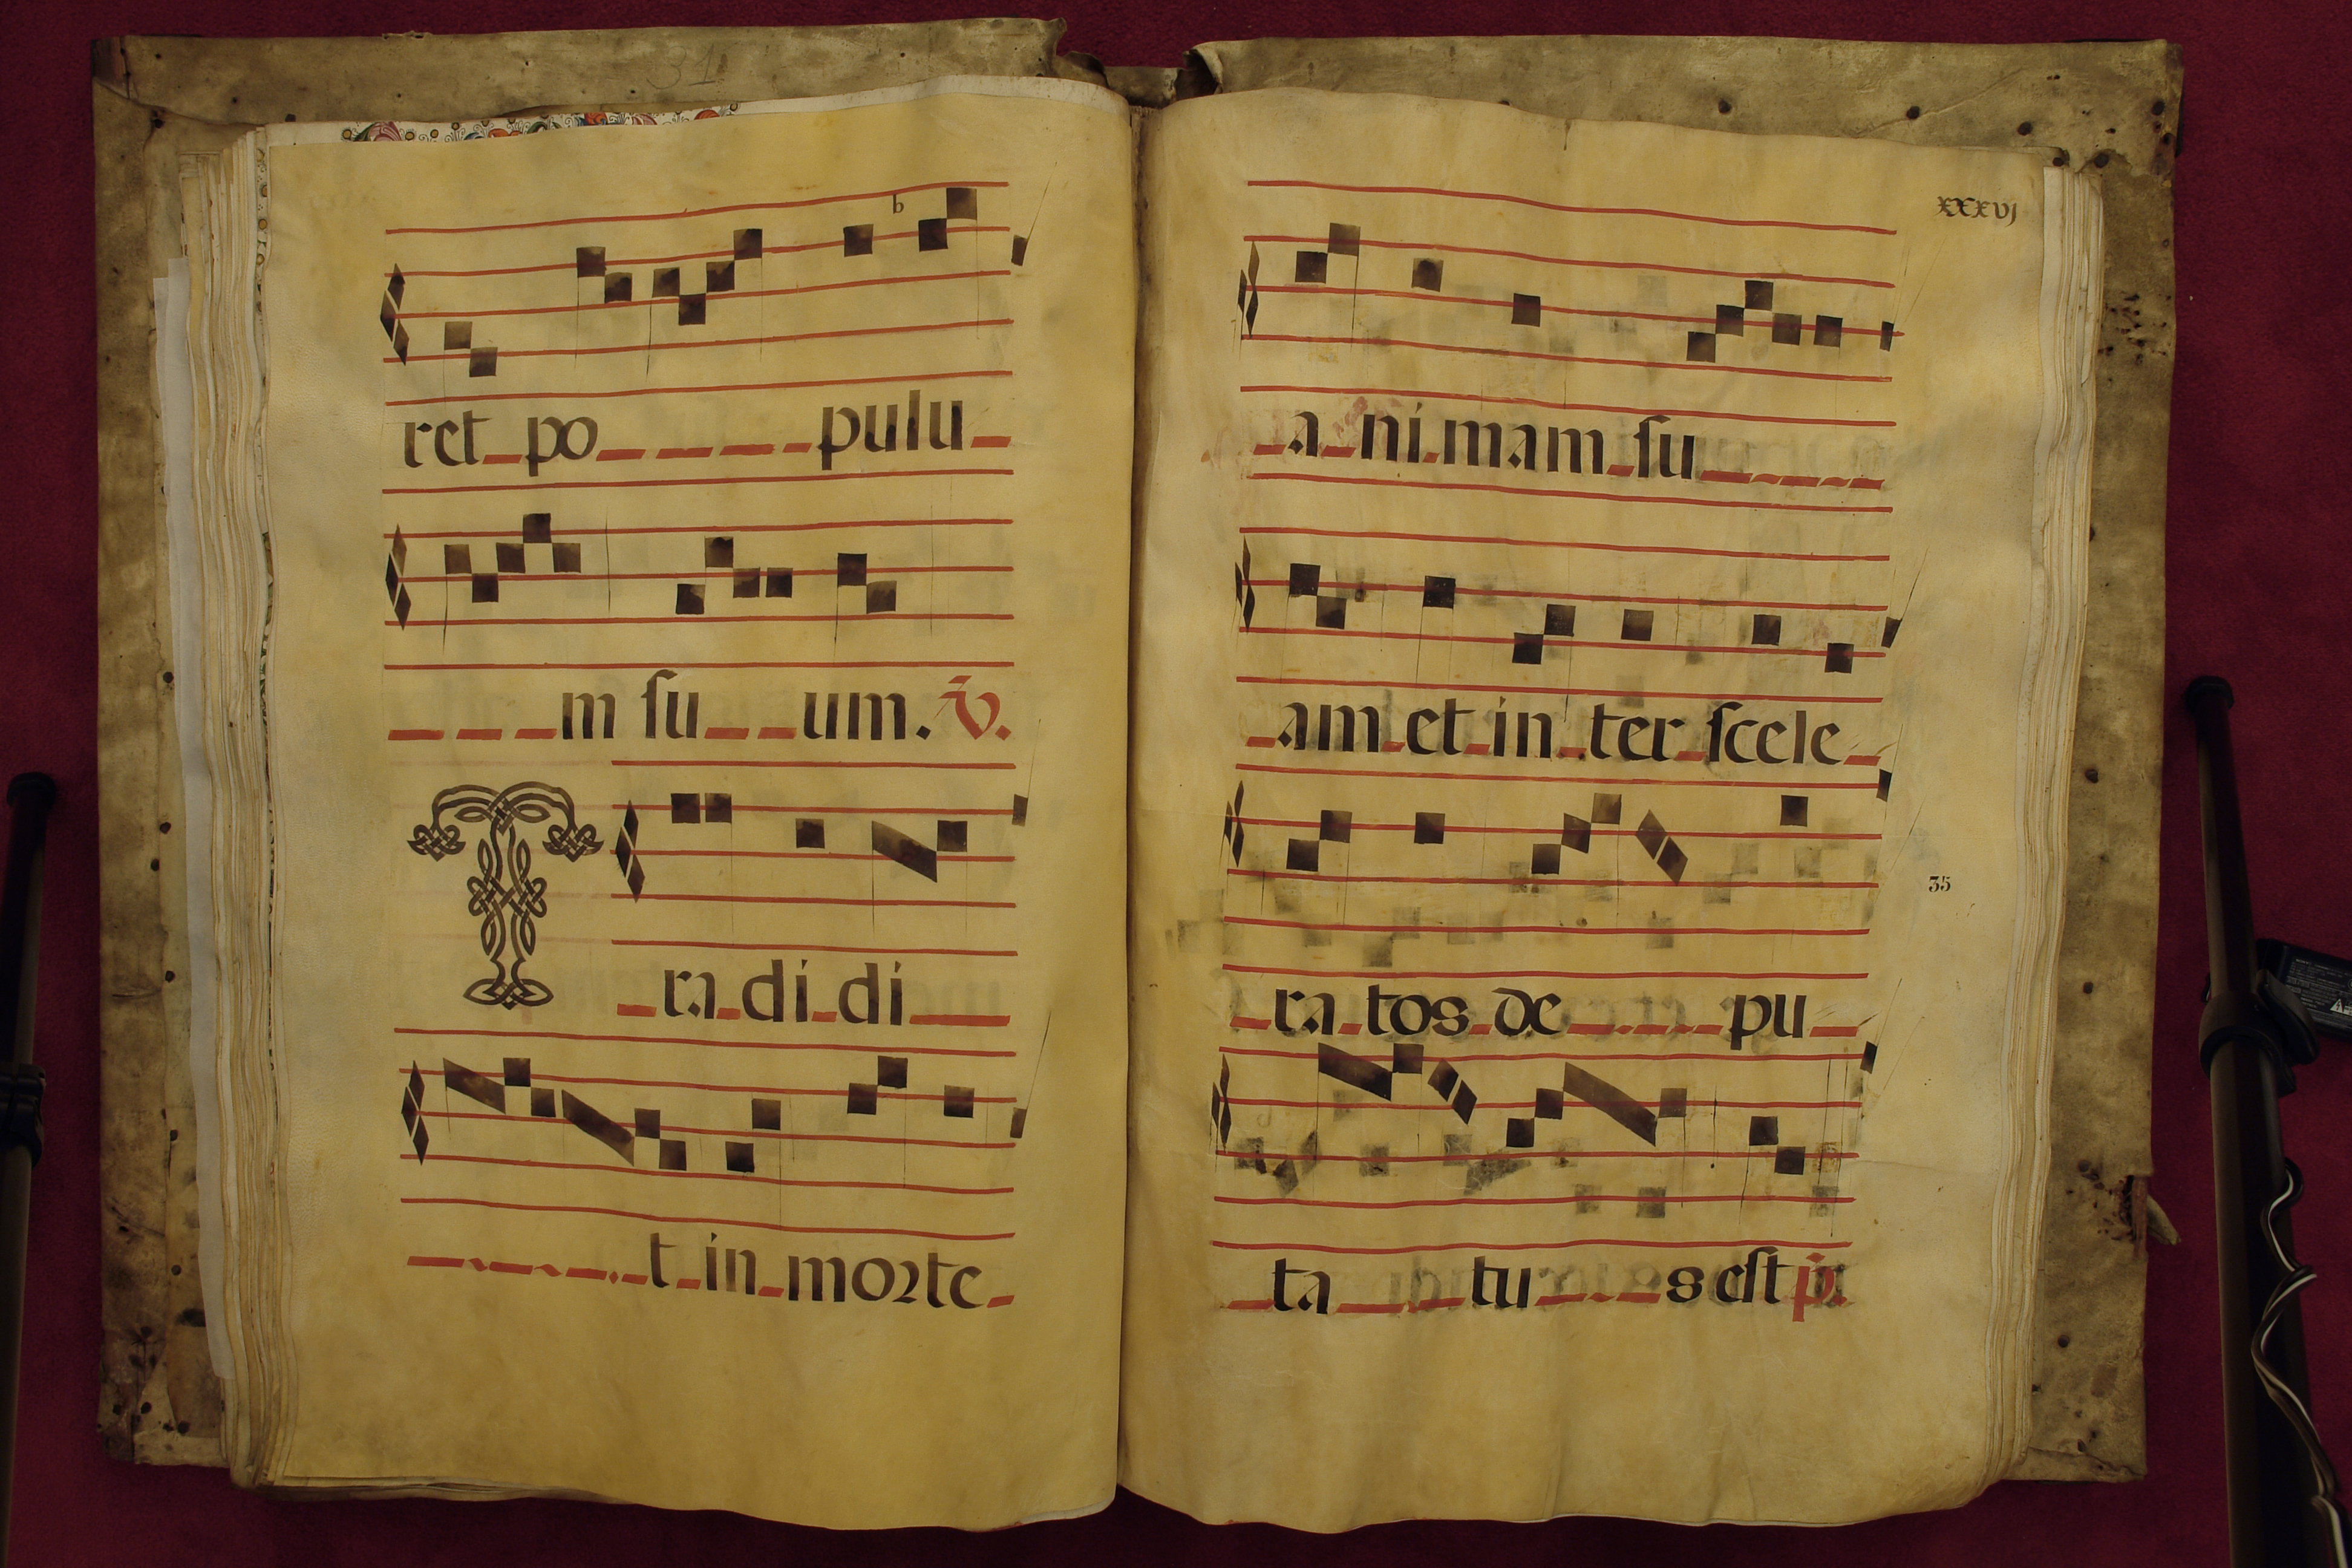 31
b
ret po pulu
m ſu um. ℣.
Tra di di
t in morte
xxxvj
a ni mam ſu
am et in ter ſcele
35
ra tos de pu
ta tu s eſt p̄.